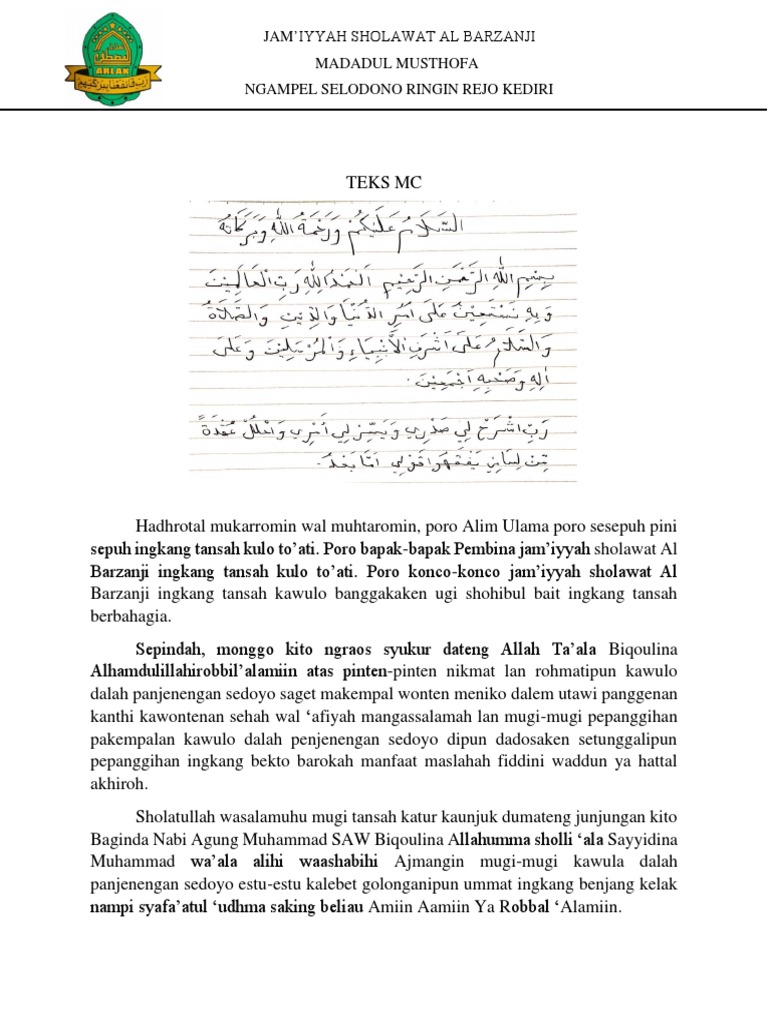 JAM’IYYAH SHOLAWAT AL BARZANJI
MADADUL MUSTHOFA
NGAMPEL SELODONO RINGIN REJO KEDIRI
TEKS MC
السَّلَامُ عَلَيْكُمْ وَرَحْمَةُ اللهِ وَبَرَكَاتُهُ
بِسْمِ اللهِ الرَّحْمٰنِ الرَّحِيْمِ الْحَمْدُ لِلّٰهِ رَبِّ الْعَالَمِيْنَ
وَبِهِ نَسْتَعِيْنُ عَلَى أُمُوْرِ الدُّنْيَا وَالدِّيْنِ وَالصَّلَاةُ
وَالسَّلَامُ عَلَى أَشْرَفِ الْأَنْبِيَاءِ وَالْمُرْسَلِيْنَ وَعَلَى
اٰلِهِ وَصَحْبِهِ أَجْمَعِيْنَ.
رَبِّ اشْرَحْ لِي صَدْرِي وَيَسِّرْ لِي أَمْرِي وَاحْلُلْ عُقْدَةً
مِّنْ لِسَانِي يَفْقَهُوا قَوْلِي أَمَّا بَعْدُ.
Hadhrotal mukarromin wal muhtaromin, poro Alim Ulama poro sesepuh pini
sepuh ingkang tansah kulo to’ati. Poro bapak-bapak Pembina jam’iyyah sholawat Al
Barzanji ingkang tansah kulo to’ati. Poro konco-konco jam’iyyah sholawat Al
Barzanji ingkang tansah kawulo banggakaken ugi shohibul bait ingkang tansah
berbahagia.
Sepindah, monggo kito ngraos syukur dateng Allah Ta’ala Biqoulina
Alhamdulillahirobbil’alamiin atas pinten-pinten nikmat lan rohmatipun kawulo
dalah panjenengan sedoyo saget makempal wonten meniko dalem utawi panggenan
kanthi kawontenan sehah wal ‘afiyah mangassalamah lan mugi-mugi pepanggihan
pakempalan kawulo dalah penjenengan sedoyo dipun dadosaken setunggalipun
pepanggihan ingkang bekto barokah manfaat maslahah fiddini waddun ya hattal
akhiroh.
Sholatullah wasalamuhu mugi tansah katur kaunjuk dumateng junjungan kito
Baginda Nabi Agung Muhammad SAW Biqoulina Allahumma sholli ‘ala Sayyidina
Muhammad wa’ala alihi waashabihi Ajmangin mugi-mugi kawula dalah
panjenengan sedoyo estu-estu kalebet golonganipun ummat ingkang benjang kelak
nampi syafa’atul ‘udhma saking beliau Amiin Aamiin Ya Robbal ‘Alamiin.